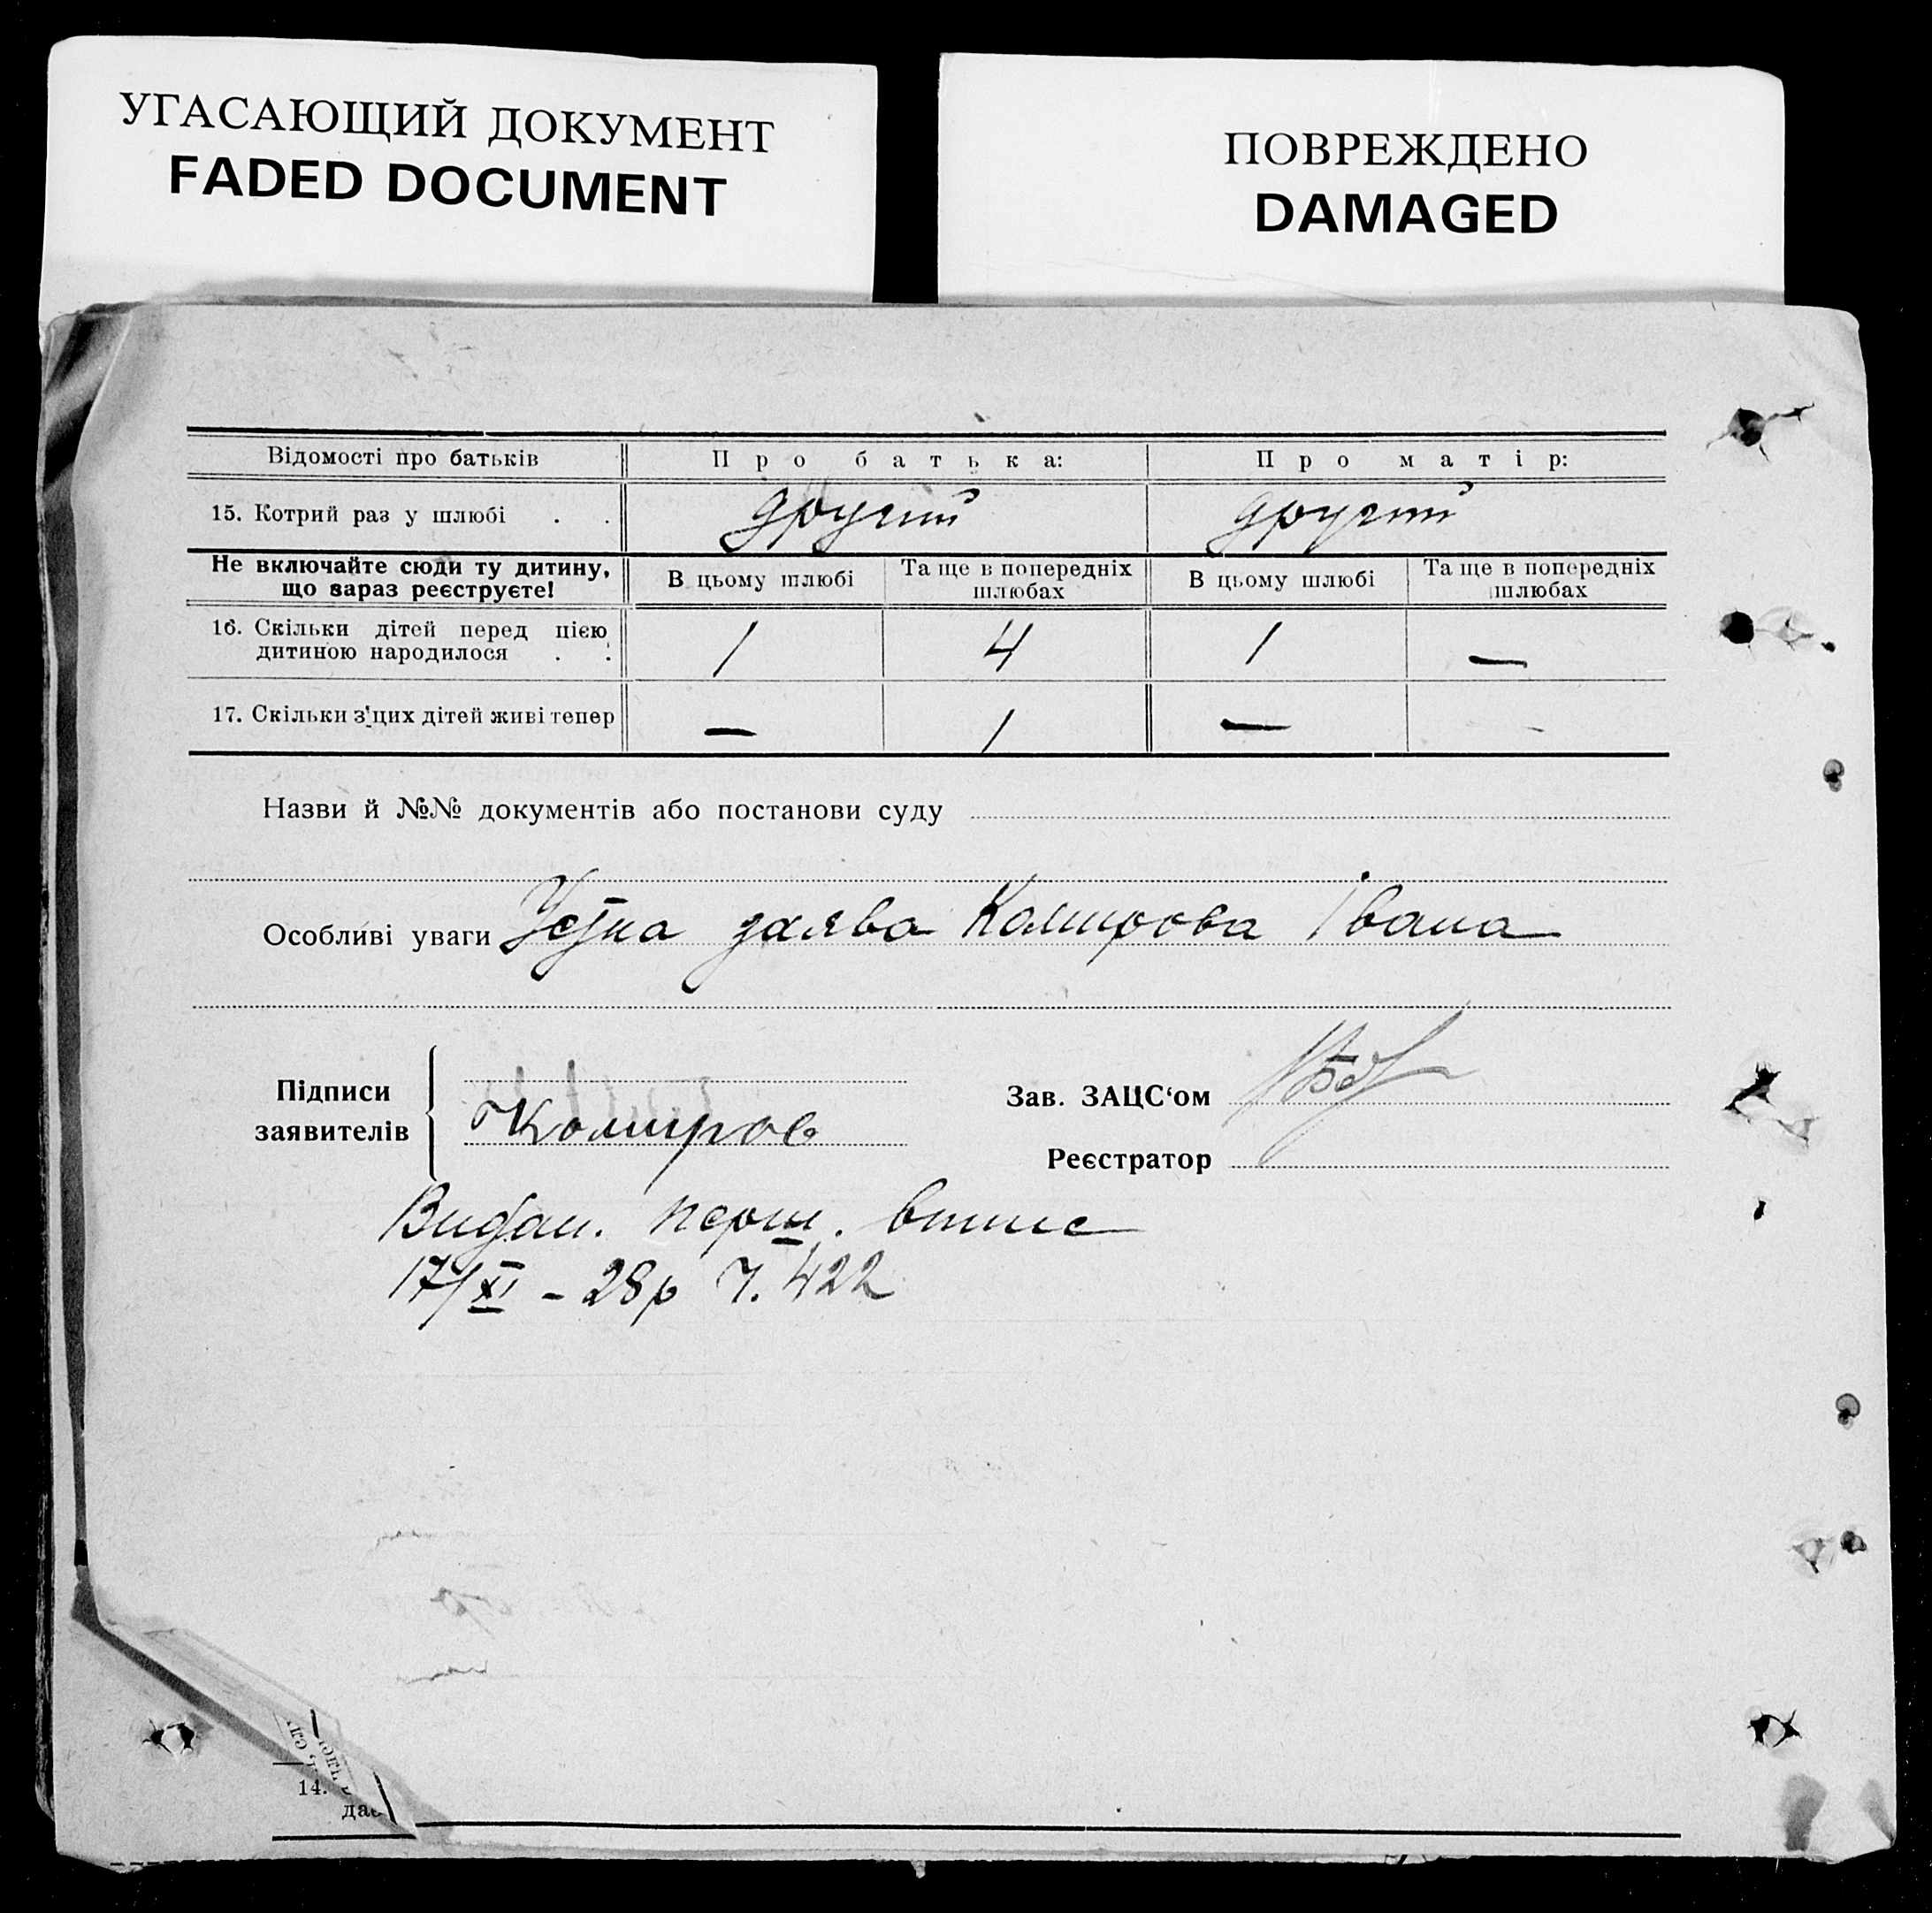 УГАСАЮЩИЙ ДОКУМЕНТ
FADED DOCUMENT
ПОВРЕЖДЕНО
DAMAGED
Відомості про батьків Про батька: Про матір:
15. Котрий раз у шлюбі . . другий другий
Не включайте сюди ту дитину, що зараз реєструєте! В цьому шлюбі Та ще в попередніх шлюбах В цьому шлюбі Та ще в попередніх шлюбах
16. Скільки дітей перед цією
дитиною народилося . . 1 4 1 —
17. Скільки з'цих дітей живі тепер — 1 — -
Назви й №№ документів або постанови суду
Особливі уваги Усна заява Івана
Підписи
заявителів
Зав. ЗАЦС‘ом
Реєстратор
Видан. перш. випис
17/XI - 28р Ч. 422
14.